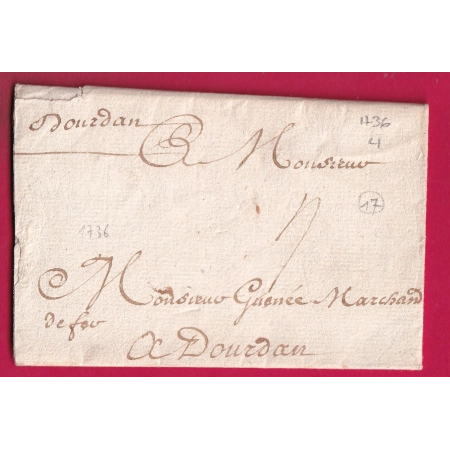 Dourdan
A Monsieur
1736
4
17
1736
Monsieur Guenée Marchand
de fer
A Dourdan